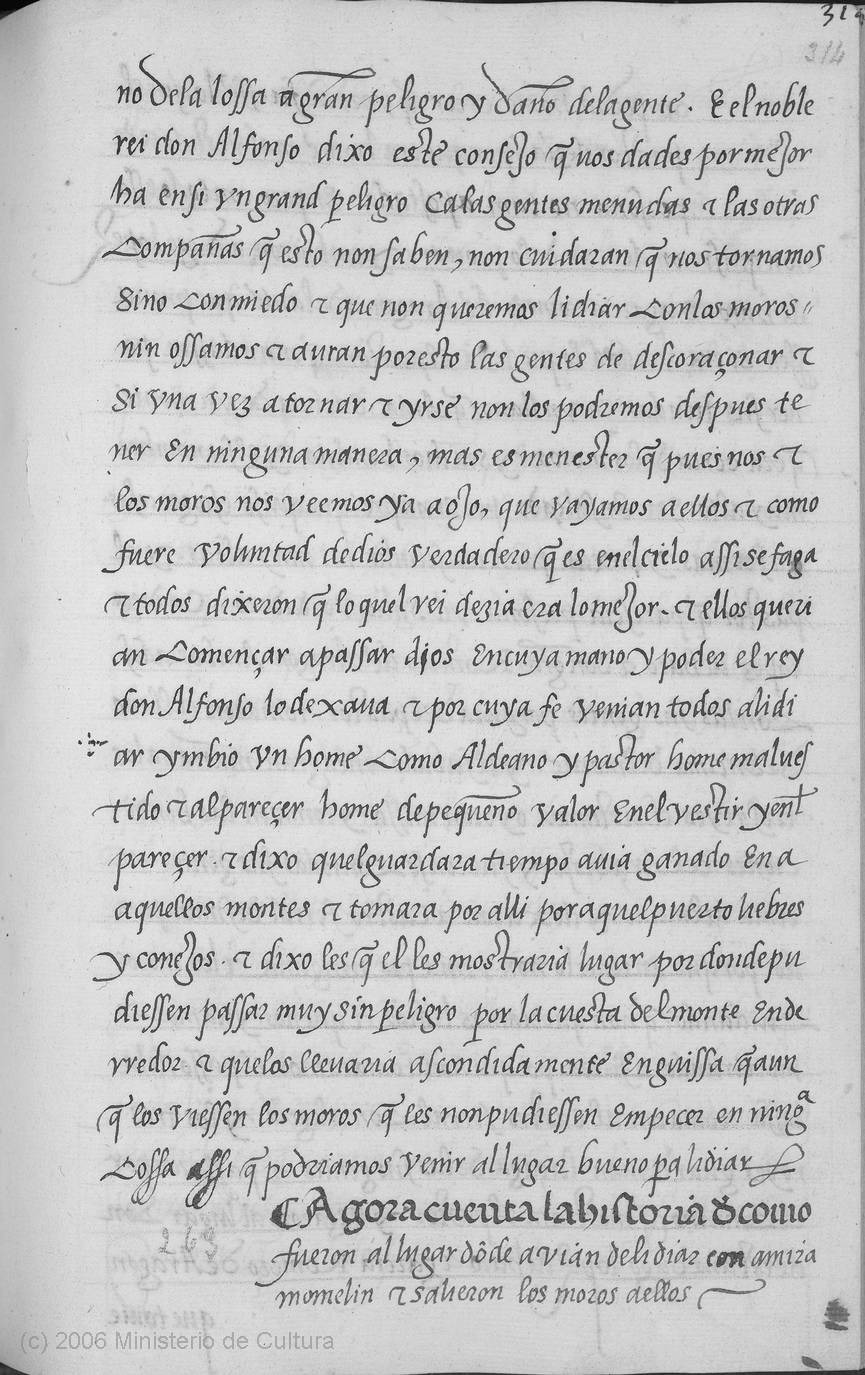 313
314
no dela lossa a gran peligro y daño delagente. E el noble
rei don Alfonso dixo este consejo q̃ uos dades por mejor
ha en si vn grand peligro Ca las gentes menudas τ las otras
Compañas q̃ esto non saben, non cuidaran q̃ nos tornamos
Sino Con miedo τ que non queremos lidiar Con los moros
nin ossamos τ auran por esto las gentes de descoraçonar τ
Si vna vez a tornar τ yrse non los podremos despues te
ner En ninguna manera, mas es menester q̃ pues nos τ
los moros nos veemos ya a ojo, que vayamos a ellos τ como
fuere voluntad de dios verdadero q̃ es en el cielo assi se faga
τ todos dixeron q̃ lo quel rei dezia era lo mejor. τ ellos queri
an Començar a passar dios En cuya mano y poder el rey
don Alfonso lo dexaua τ por cuya fe venian todos a lidi
ar ymbio vn home Como Aldeano y pastor home mal ves
tido τ al pareçer home de pequeño valor En el vestir y enl
pareçer. τ dixo quel guardara tiempo auia ganado En a
aquellos montes τ tomara por alli por aquel puerto liebres
y conejos. τ dixo les q̃ el les mostraria lugar por donde pu
diessen passar muy sin peligro por la cuesta del monte En de
rredor τ que los llevaria ascondidamente En guissa q̃ aun
q̃ los viessen los moros q̃ les non pudiessen Empecer en ningª
Cossa assi q̃ podriamos venir al lugar bueno pa lidiar
¶ Agora cuenta la historia de como
fueron al lugar dõde avian de lidiar con amira
momelin τ salieron los moros a ellos
269
(c) 2006 Ministerio de Cultura